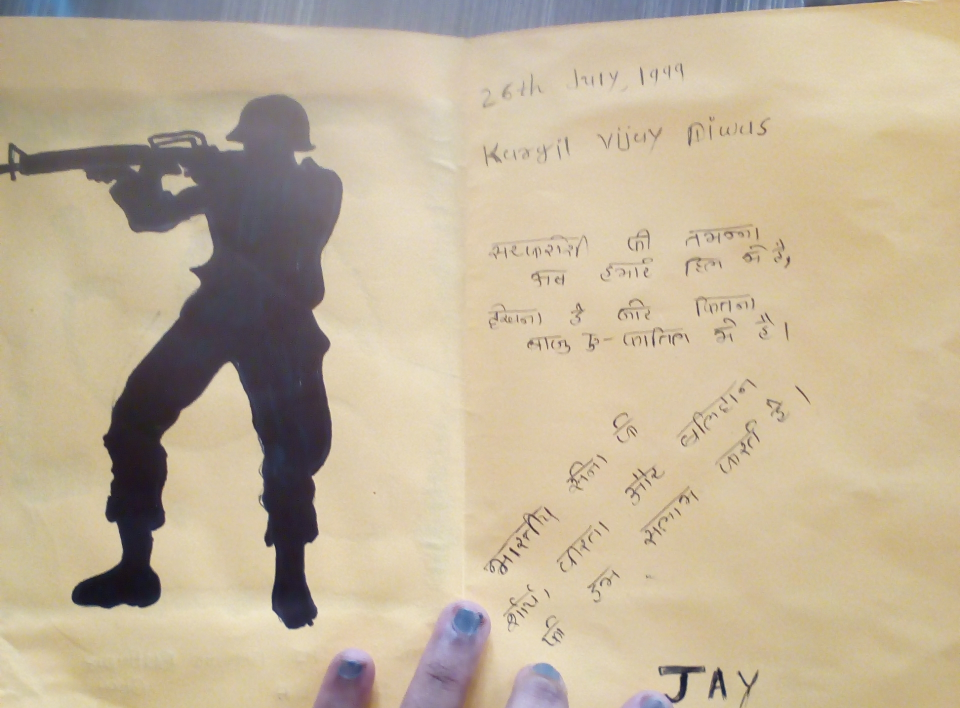 26th July, 1999
Kargil Vijay Diwas
सरफरोशी की तमन्ना
अब हमारे दिल मे है,
देखना है जोर कितना
बाजु ए-कातिल मे है।
भारतीय सेना के
शौर्य, वीरता और बलिदान
को हम सलाम करते है।
JAY